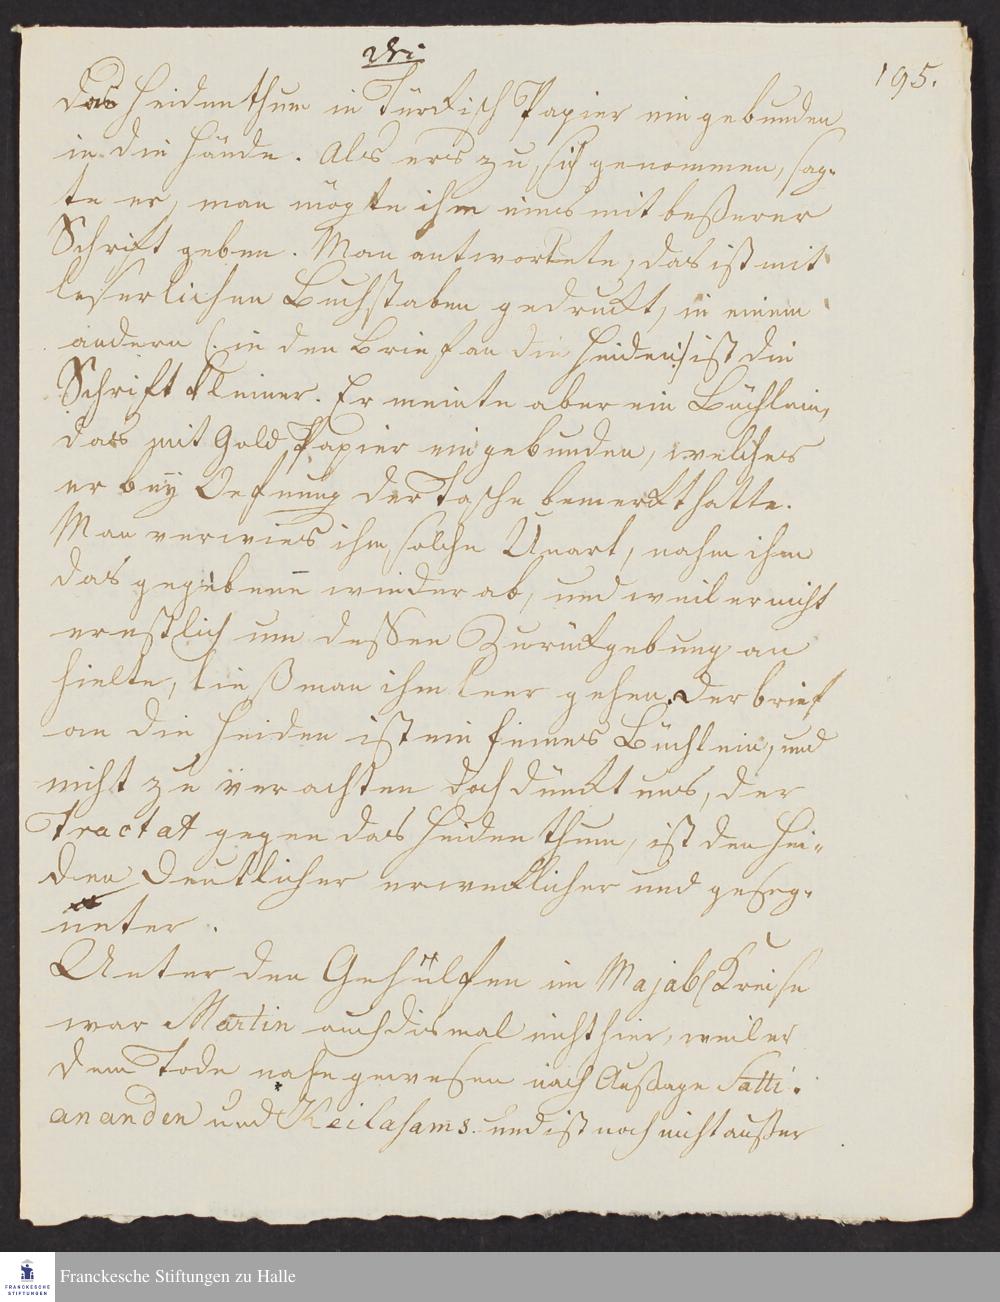 195.
das Heidenthum in Türckisch Papier eingebunden
in die Hände. Als ers zu sich genommen, sag-
te er, man mögte ihm eines mit beßerer
Schrift geben. Man antwortete, das ist mit
leserlichen Buchstaben gedruckt, in einem
andern (: in den Brief an die Heiden:) ist die
Schrift kleiner. Er meinte aber ein Büchlein,
das mit Gold Papier eingebunden, welches
er bey Oefnung der Tasche bemerkt hatte.
Man verwies ihm solche Unart, nahm ihm
das gegebene wieder ab, und weil er nicht
ernstlich um dessen Zurückgebung an
hielte, ließ man ihm leer gehen. Der brief
an die Heiden ist ein feines Büchlein, und
nicht zu verachten doch dünckt uns, der
Tractat gegen das Heidenthum, ist den Hei-
den deutlicher erwecklicher und geseg-
neter.
Unter den Gehülfen im Majab. Kreise
war Martin auch dismal nicht hier, weil er
dem Tode nahe gewesen nach Außage Satti-
ananden und Keilasams. und ist noch nicht außer
FRANCKESCHE
STIFTUNGEN
Franckesche Stiftungen zu Halle